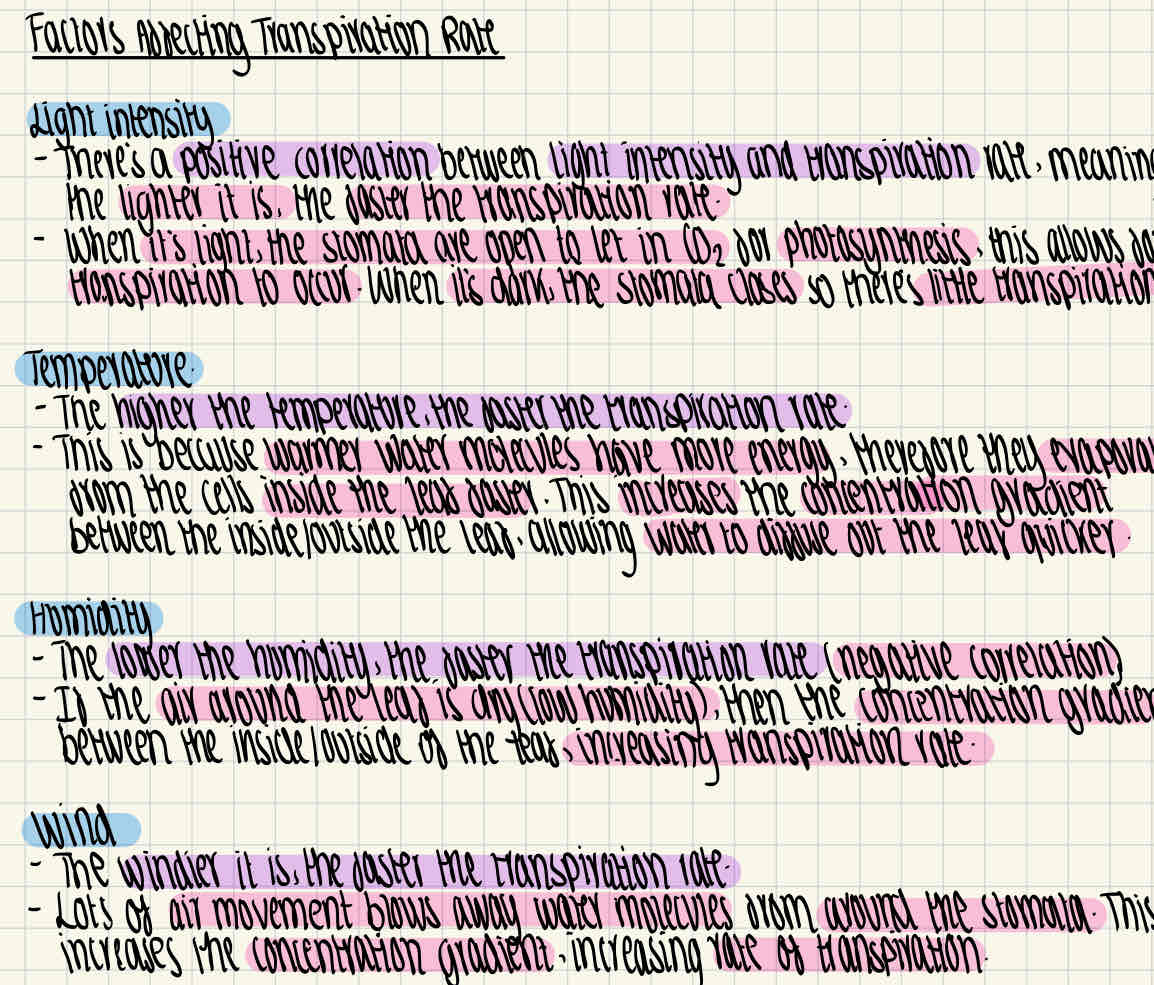 Factors Affecting Transpiration Rate
Light intensity
- There's a positive correlation between light intensity and transpiration rate, meaning
the lighter it is, the faster the transpiration rate.
- When it's light, the stomata are open to let in CO₂ for photosynthesis, this allows for
transpiration to occur. When it's dark, the stomata closes so there's little transpiration
Temperature.
- The higher the temperature, the faster the transpiration rate.
- This is because warmer water molecules have more energy, therefore they evapora
from the cells inside the leaf faster. This increases the concentration gradient
between the inside/outside the leaf, allowing water to diffuse out the leaf quicker.
Humidity
- The lower the humidity, the faster the transpiration rate (negative correlation)
- If the air around the leaf is dry (low humidity), then the concentration gradien
between the inside/outside of the leaf, increasing transpiration rate.
Wind
- The windier it is, the faster the transpiration rate.
- Lots of air movement blows away water molecules from around the stomata. This
increases the concentration gradient, increasing rate of transpiration.